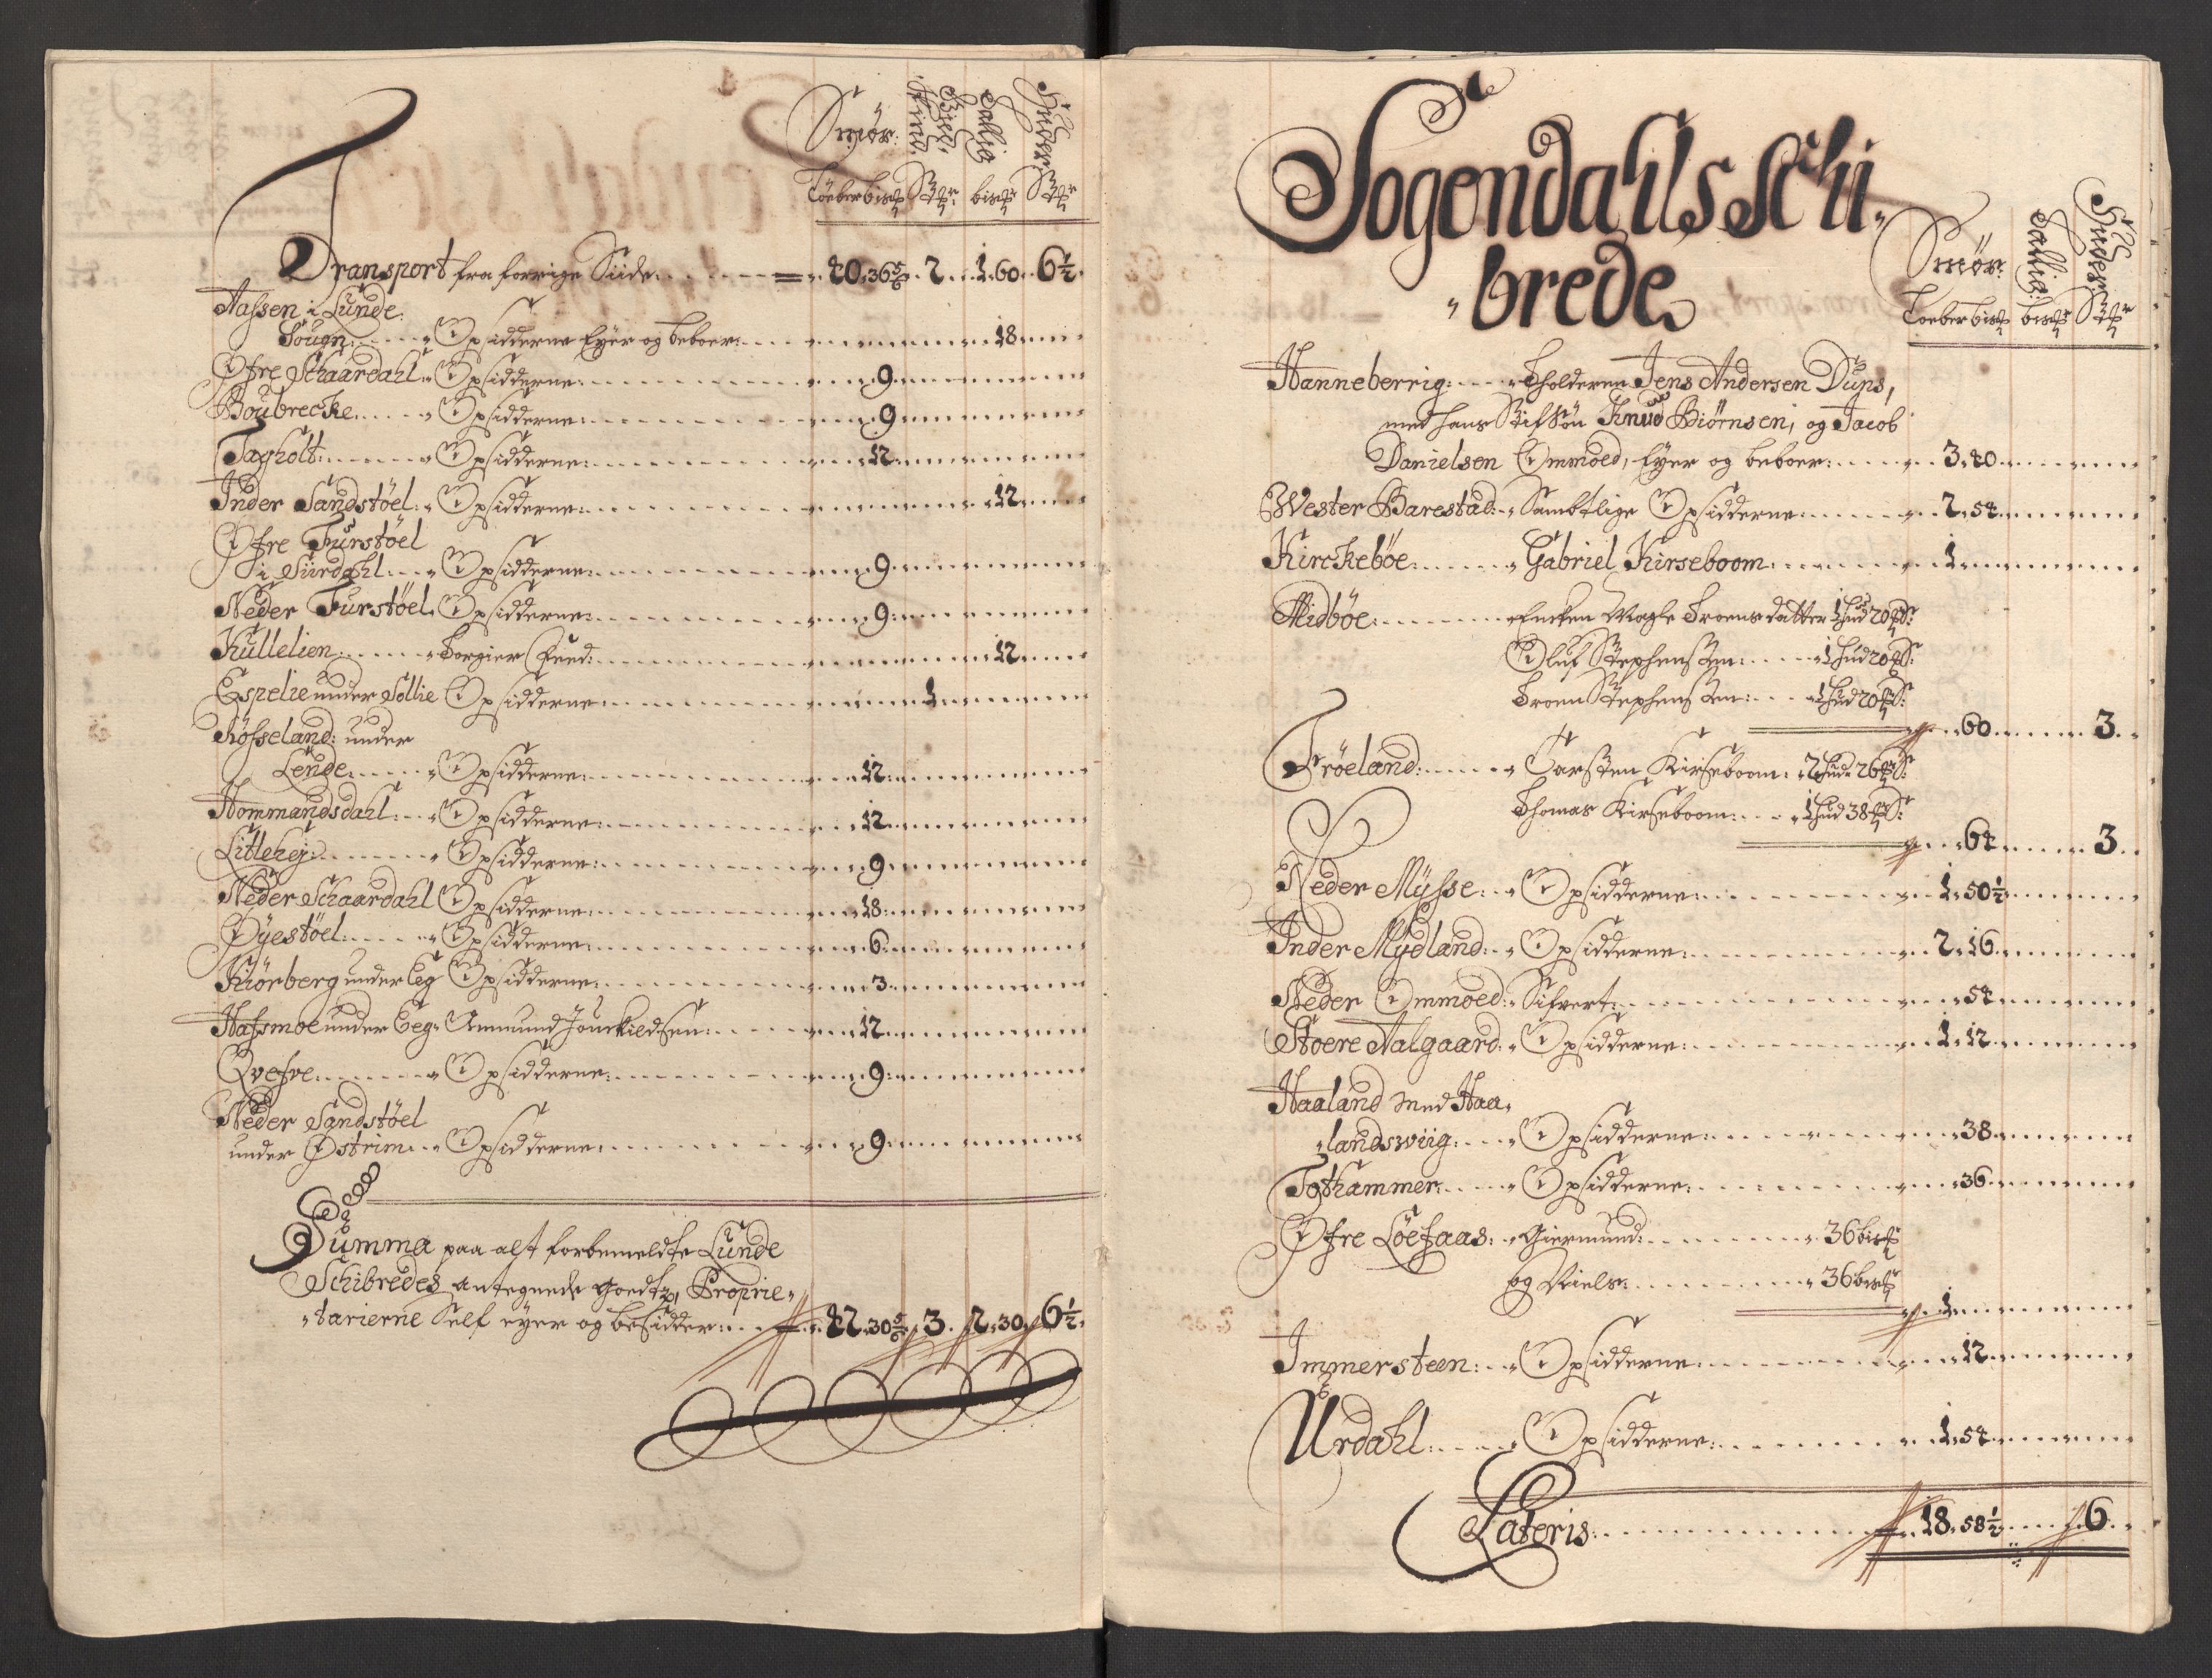 Smør:
Biel. Skind.
Sallig
Huder
Løeber bis℔ Stk bis℔ Stk
Transport fra forrige Siide 40. 36 5/6. 2. 1. 60. 6 1/2.
Aassen i Lunde
Sougn: Opsidderne Eyer og beboer: 18
Øfre Schaardahl Opsidderne 9
Boubrecke Opsidderne 9
Tagholt Opsidderne 12
Inder Sandstöel Opsidderne 12
Øfre Furstöel
i Siirdahl Opsidderne 9
Neder Furstöel Opsidderne 9
Kullelien Torgier 12
Espelie under Sollie Opsidderne 1
Røsseland: under
Lende Opsidderne 12
Hommandsdahl Opsidderne 12
Litlehej Opsidderne 9
Neder Schaardahl Opsidderne 18
Øyestöel Opsidderne 6
Kiörberg under Eeg Opsidderne 3
Hafsmoe under Eeg Anmund 12
Qvefve Opsidderne 9
Neder Sandstöel
under Østrim Opsidderne 9
Summa paa alt forbemeldte Lunde
Schibredes antegnede Goedtz, Proprie-
tarierne Self eyer og besidder: 42. 30 5/6. 3. 2. 30. 6 1/2.
Sogendahls Schi-
brede
Smør:
Sallig
Huder
Løeber bis℔ bis℔ Stk
Hanneberrig: Jens Andersen Duns,
med hans Stifsøn Knud Biörnsen, og Jacob
Danielsen Ommoed, Eyer og beboer: 3. 40
Wester Barestad: Samptlige Opsidderne 2. 54
Kirckebøe Gabriel Kirseboom 1
Midbøe: Encken Magle Troensdatter 1 hud 20
Oluf Stephensøn 1 hud 20
Troen Stephensøn 1 hud 20
60 3
Frøeland: Carsten Kirseboom: 2 hud 26
Thomas Kirseboom 1 hud 38
64 3
Neder Mysse: Opsidderne 1. 50 1/2
Inder Mydland: Opsidderne 2. 16
Neder Ommoed: Sifvert 54
Stoere Aalgaard: Opsidderne 1. 12
Haaland med Haa-
landswiig: Opsidderne 38
Tothammer Opsidderne 36
Øfre Löefaas: Giermund 36 bis℔
og Niels 36 bis℔
1
Immersteen: Opsidderne 12
Urdahl: Opsidderne 1. 54
Lateris 18. 58 1/2. 6